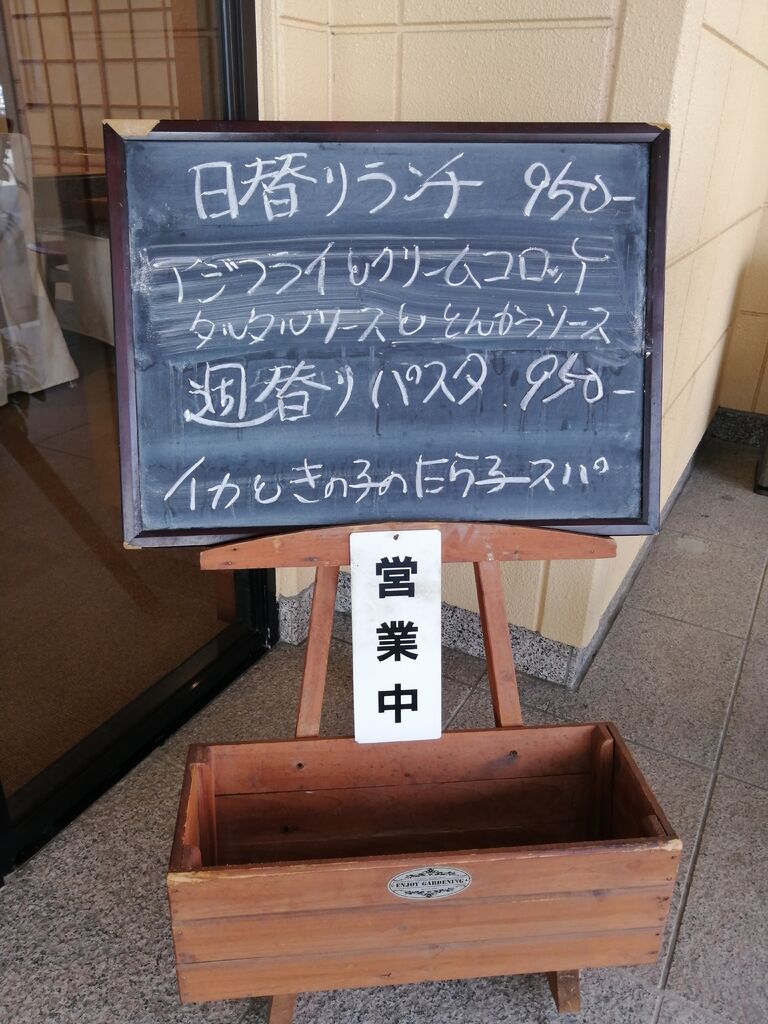 日替リランチ 950-
アジフライとクリームコロッケ
タルタルソースと とんかつソース
週替りパスタ 950-
イカときの子のたら子スパ
営業中
ENJOY GARDENING